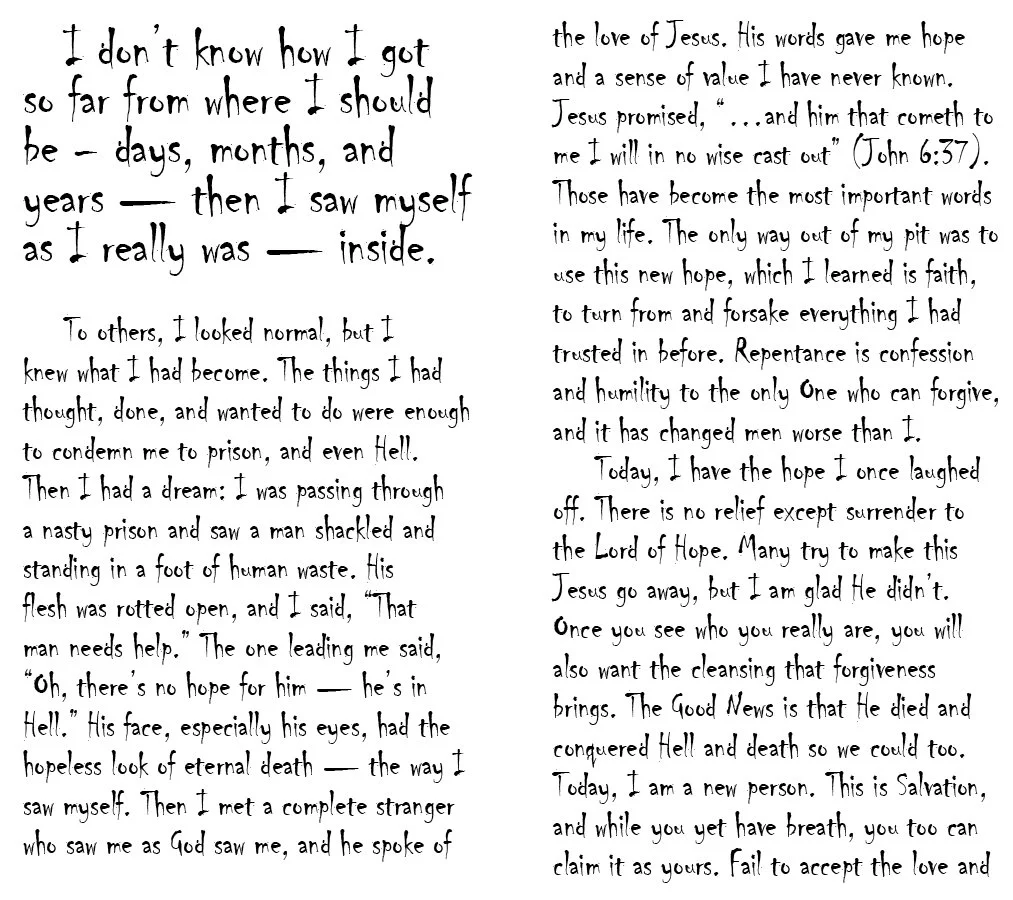 I don't know how I got
so far from where I should
be – days, months, and
years — then I saw myself
as I really was — inside.
To others, I looked normal, but I
knew what I had become. The things I had
thought, done, and wanted to do were enough
to condemn me to prison, and even Hell.
Then I had a dream: I was passing through
a nasty prison and saw a man shackled and
standing in a foot of human waste. His
flesh was rotted open, and I said, “That
man needs help.” The one leading me said,
“Oh, there's no hope for him — he's in
Hell.” His face, especially his eyes, had the
hopeless look of eternal death — the way I
saw myself. Then I met a complete stranger
who saw me as God saw me, and he spoke of
the love of Jesus. His words gave me hope
and a sense of value I have never known.
Jesus promised, “...and him that cometh to
me I will in no wise cast out” (John 6:37).
Those have become the most important words
in my life. The only way out of my pit was to
use this new hope, which I learned is faith,
to turn from and forsake everything I had
trusted in before. Repentance is confession
and humility to the only One who can forgive,
and it has changed men worse than I.
Today, I have the hope I once laughed
off. There is no relief except surrender to
the Lord of Hope. Many try to make this
Jesus go away, but I am glad He didn't.
Once you see who you really are, you will
also want the cleansing that forgiveness
brings. The Good News is that He died and
conquered Hell and death so we could too.
Today, I am a new person. This is Salvation,
and while you yet have breath, you too can
claim it as yours. Fail to accept the love and